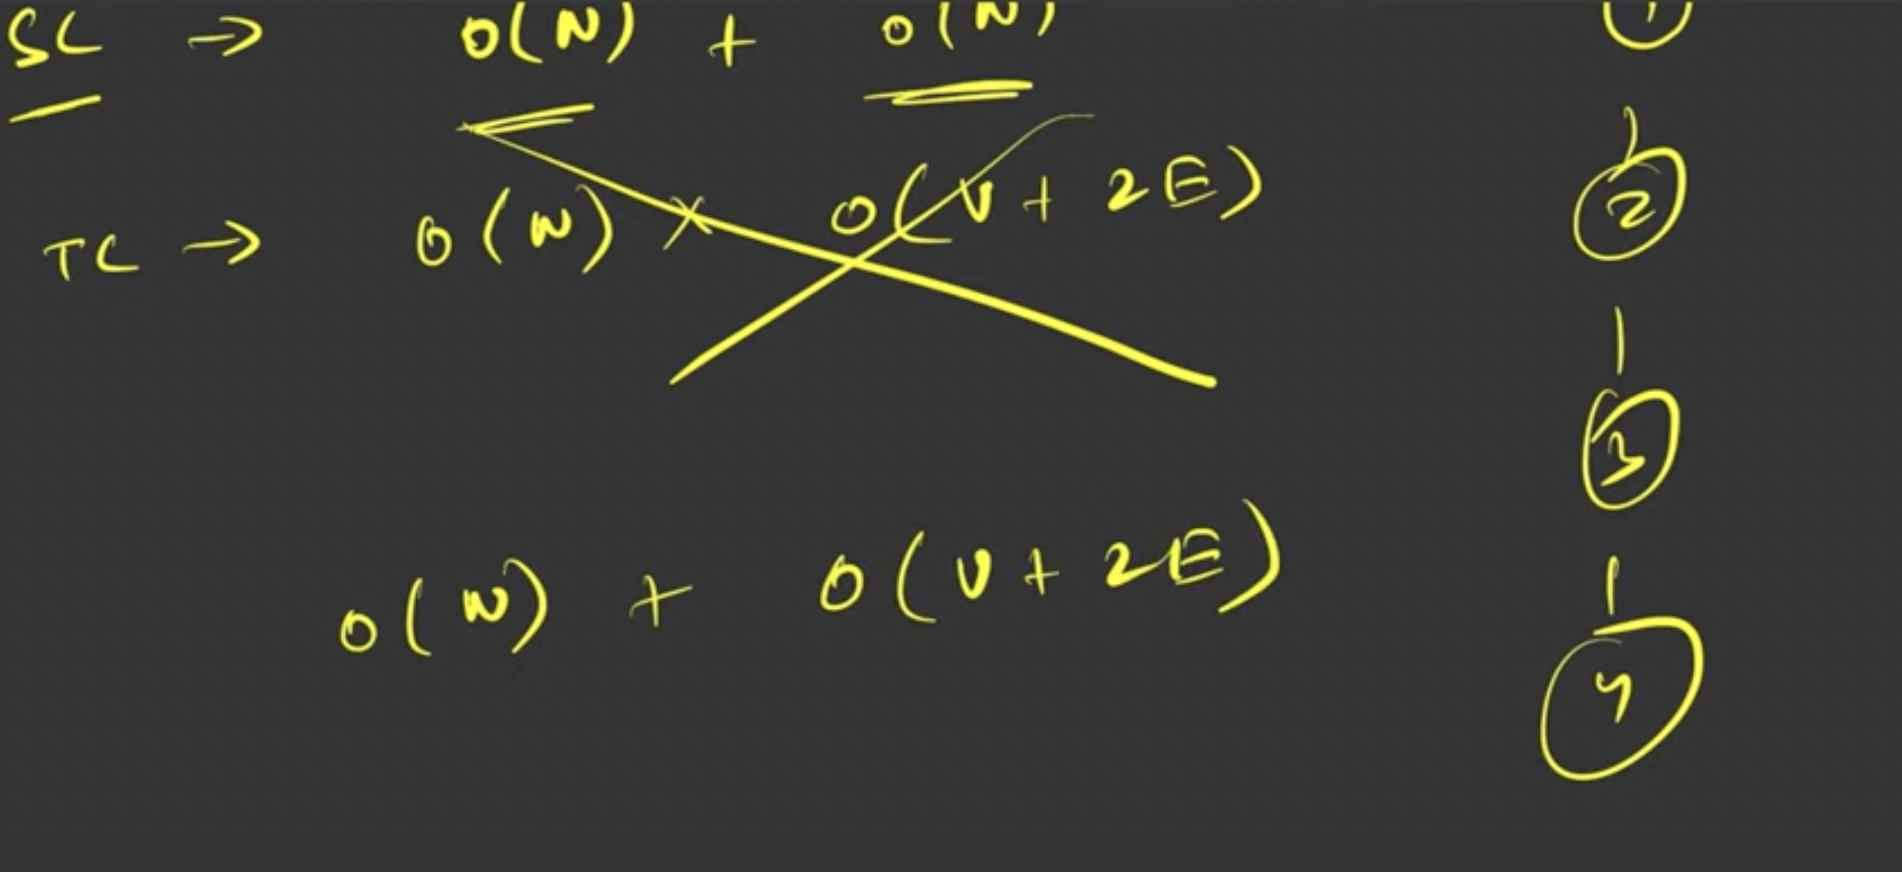 SC → O(N) + O(N)
TC → O(N) × O(V + 2E)
O(N) + O(V + 2E)
1
2
3
4